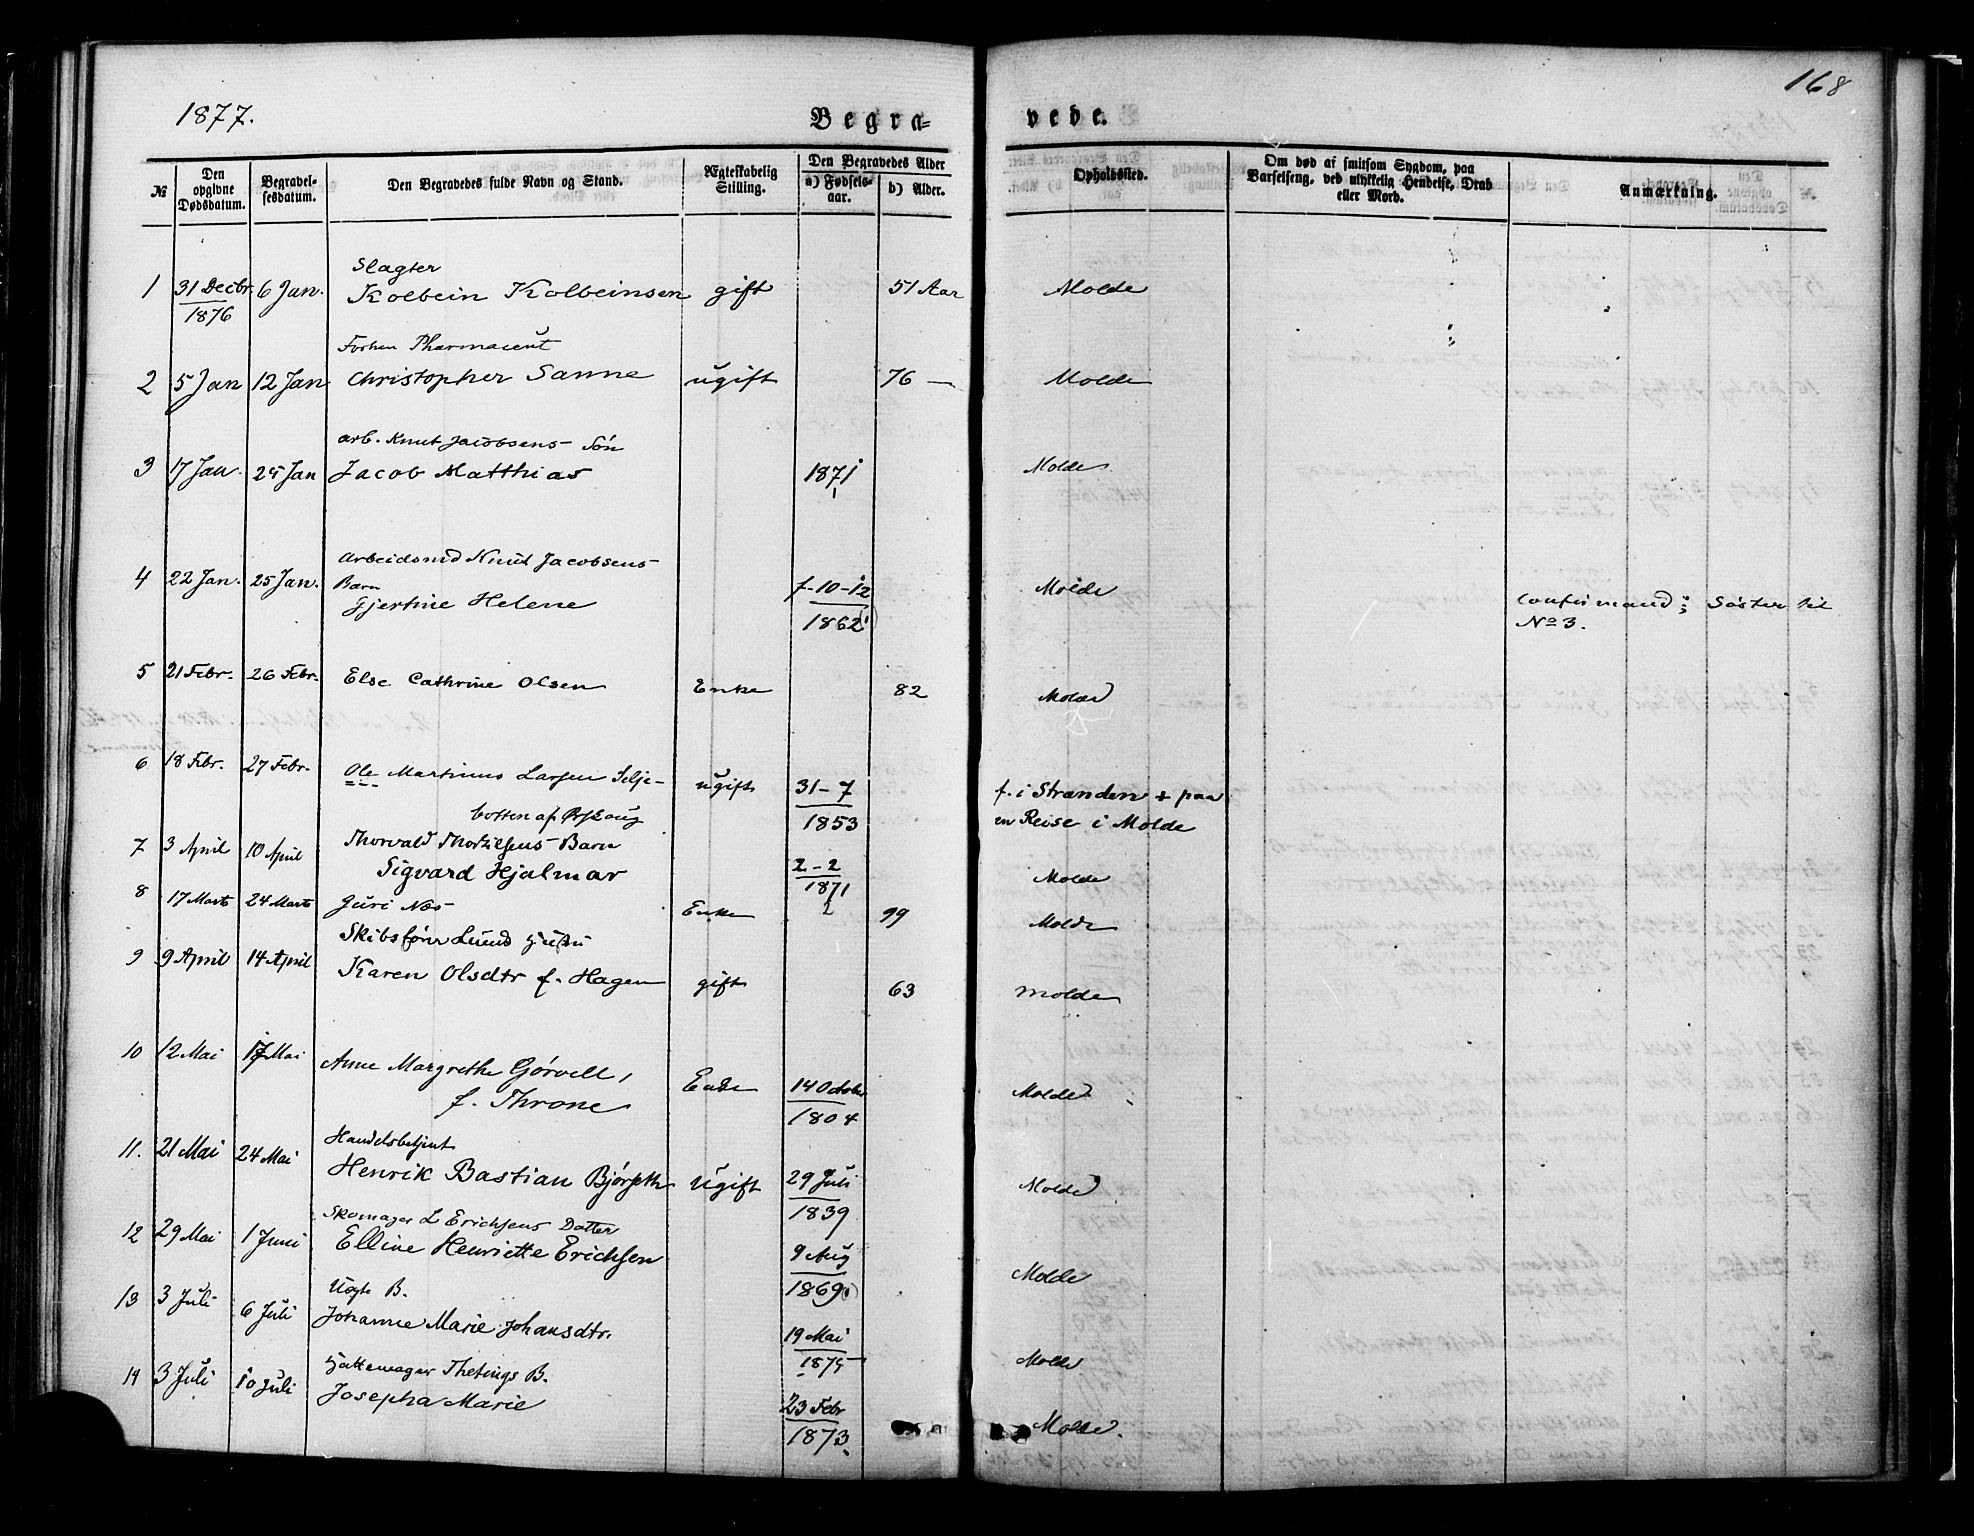 1877.
168
Begra=
vede.
№
Den opgivne Dødsdatum.
Begravel-sesdatum.
Den Begravedes fulde Navn og Stand.
Ægteskabelig Stilling.
Den Begravedes Alder
a) Fødsels-aar.
b) Alder.
Opholdssted.
Om død af smitsom Sygdom, paa Barselseng, ved ulykkelig Hendelse, Drab eller Mord.
Anmærkning.
Slagter
1 31 Decbr 6 Jan. Kolbein Kolbeinsen gift 51 Aar Molde
1876
Forhen Pharmaceut
2 5 Jan 12 Jan Christopher Sanne ugift 76 — Molde
arb. Knut Jacobsens Søn
3 17 Jan. 25 Jan Jacob Matthias 1871 Molde
Arbeidsmd Knut Jacobsens
4 22 Jan. 25 Jan. Barn f. 10-12 Molde
Gjertine Helene 1862 Confirmand; Søster til
No 3.
5 21 Febr. 26 Febr. Else Cathrine Olsen Enke 82 Molde
6 18 Febr. 27 Febr. Ole Martinus Larsen Selje- ugift 31-7 f. i Stranden + paa
botten af Ørskoug 1853 en Reise i Molde
7 3 April 10 April Thorvald Barn
Sigvard Hjalmar 2-2 Molde
1871
8 17 Marts 24 Marts Guri Næs Enke 99 Molde
Skibsfører Lund
9 9 April 14 April Karen Olsdtr f. Hagen gift 63 Molde
10 12 Mai 17 Mai Anne Margrethe Gørvell, Enke 14 October Molde
f. Throne 1804
Handelsbetjent
11. 21 Mai 24 Mai Henrik Bastian Bjørseth ugift 29 Juli Molde
1839
Skomager L Erichsens Datter
12 29 Mai 1 Juni Elline Henriette Erichsen 9 Aug Molde
1869
Uægte B.
13 3 Juli 6 Juli Johanne Marie Johansdtr. 19 Mai Molde
1875
Hattemager Thetings B.
14 3 Juli 10 Juli Josepha Marie 23 Febr Molde.
1873